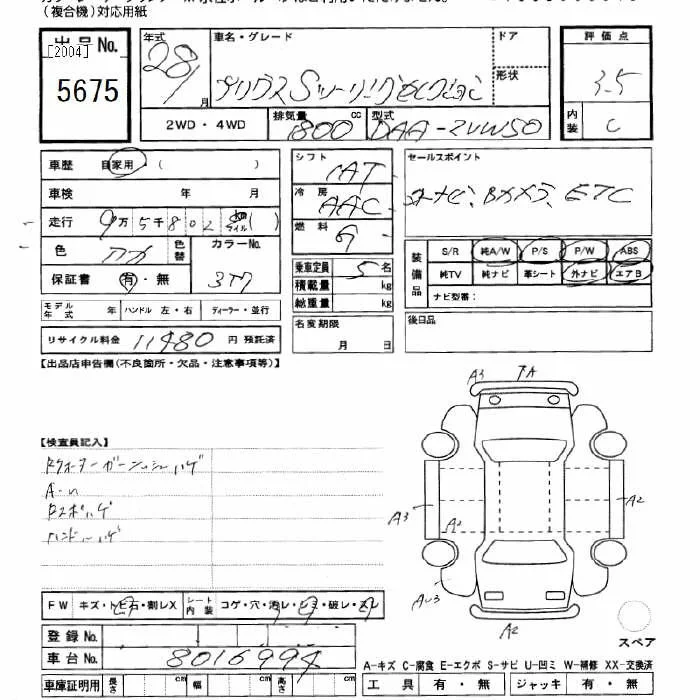 （複合機）対応用紙
出品No.
[2004]
5675
年式
28年
月
車名・グレード
プリウス Sツーリングセレクション
ドア
形状
評価点
3.5
内装
C
2WD・4WD
排気量
1800
cc
型式
DAA-ZVW50
車歴
自家用・（ ）
車検
年 月
走行
9万5千802
km
マイル
（ ）
色
アカ
色替
カラーNo.
3T7
保証書
有・無
シフト
IAT
冷房
AAC
燃料
G
乗車定員
5名
積載量
kg
総重量
kg
セールスポイント
ナビ、Bカメラ、ETC
装備品
S/R 純A/W P/S P/W ABS
純TV 純ナビ 革シート 外ナビ エアB
ナビ型番：
モデル年式 年 ハンドル 左・右 ディーラー・並行
リサイクル料金 11480円 預託済
名変期限
月 日
後日品
【出品店申告欄（不良箇所・欠品・注意事項等）】
【検査員記入】
ハンドルハゲ
A3
A
A3
A2
A2
A2
FW キズ・トビ石・割レX
シート内装 コゲ・穴・汚レ・シミ・破レ・スレ
登録No.
車台No.
8016994
車庫証明用
長さ cm 幅 cm 高さ cm
スペア
A-キズ C-腐食 E-エクボ S-サビ U-凹ミ W-補修 XX-交換済
工具 有・無 ジャッキ 有・無